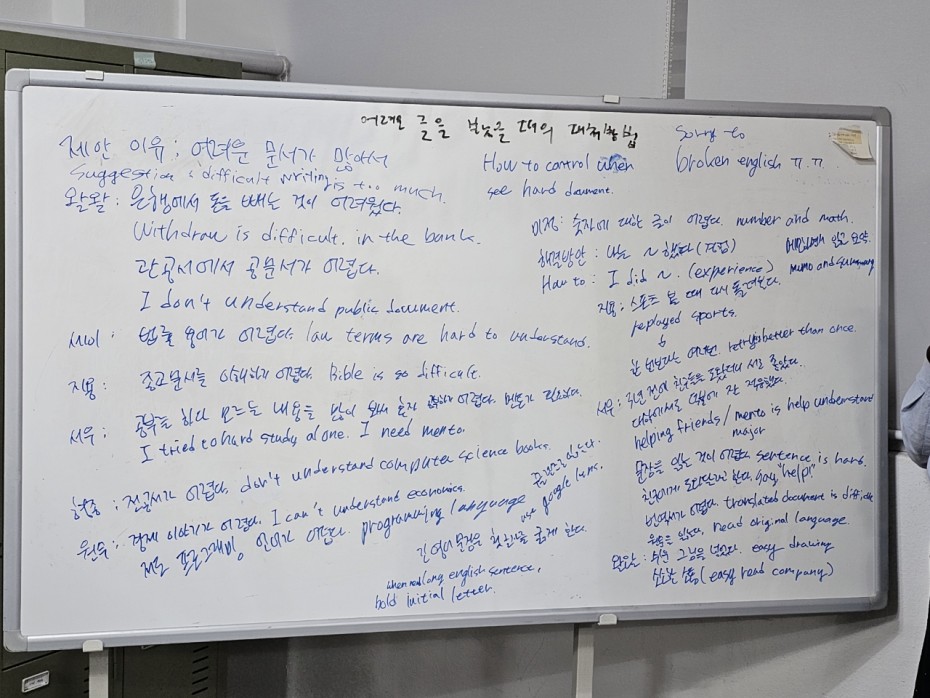 어려운 글을 봤을 때의 대처방법
Sorry to
broken english ㅠㅠ
제안 이유: 어려운 문서가 많아서
Suggestion : difficult writing is too much.
How to control when
see hard document.
왈왈: 은행에서 돈을 빼는 것이 어려웠다.
Withdraw is difficult. in the bank.
관공서에서 공문서가 어렵다.
I don't understand public document.
세이: 법률 용어가 어렵다. law terms are hard to understand.
지용: 종교문서를 이해하기 어렵다. Bible is so difficult.
서우: 공부를 하다 모르는 내용을 많이 봐서 혼자 어렵다. 멘토가 필요하다.
I tried to hard study alone. I need mento.
현승: 전공서가 어렵다. don't understand computer science books.
원우: 경제 이야기가 어렵다. I can't understand economics.
프로그래밍 언어가 어렵다. programming language
use google lens.
긴 영어 문장은 첫 글자를 굵게 한다.
when read long english sentence,
bold initial letter.
미정: 숫자에 대한 글이 어렵다. number and math.
해결방안: 나는 ~ 했다 (경험)
How to: I did ~. (experience)
읽고 요약.
memo and summary
지용: 스포츠 볼 때 다시 돌려본다.
replayed sports.
한 번보다는 여러번. retry is better than once.
서우: 친구들을 도왔더니 서로 좋았다.
대학에서도 덕분에 잘 적응했다.
helping friends/mento is help understand
major
문장을 읽는 것이 어렵다. sentence is hard.
친구에게 도와달라고 한다. say "help!"
번역서가 어렵다. translated document is difficult
원문을 읽는다. read original language.
왈왈: 쉬운 그림을 넣었다. easy drawing
(easy read company)